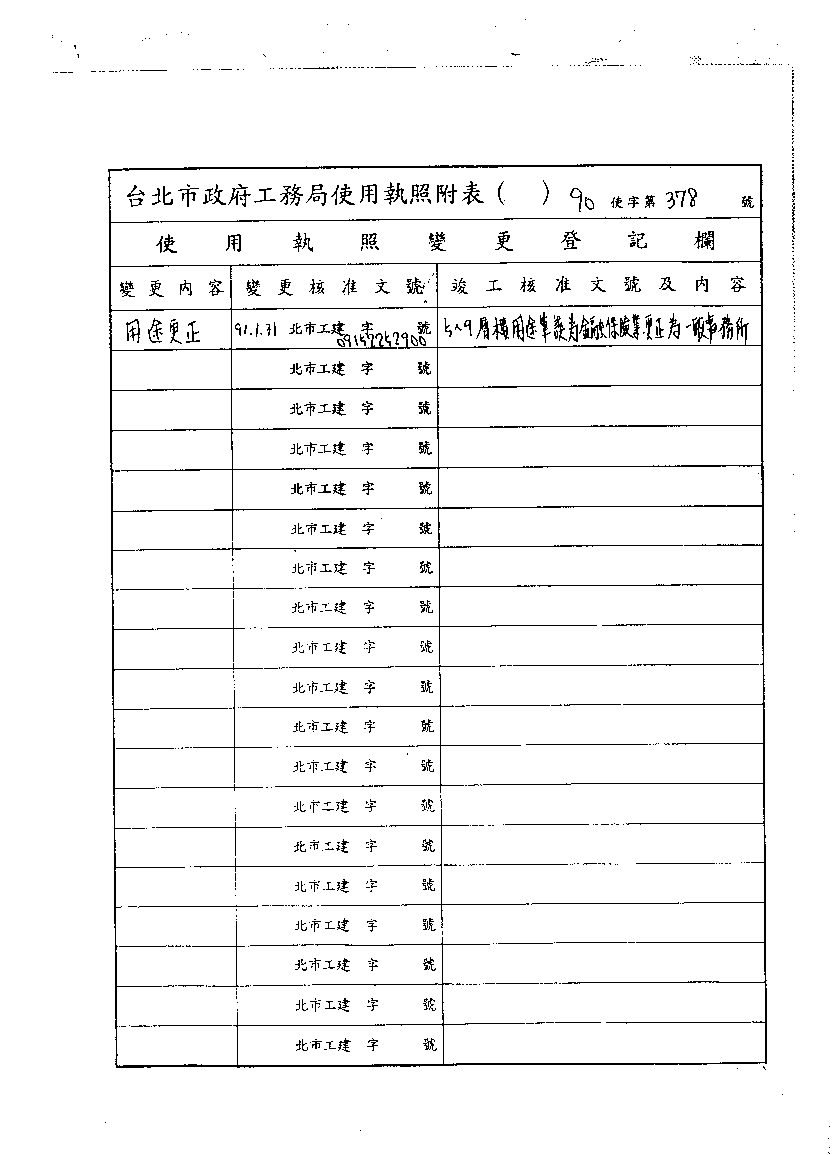 台北市政府工務局使用執照附表( ) 90 使字第 378 號
使用執照變更登記欄
變更內容 變更核准文號 竣工核准文號及內容
用途更正 91.1.31 北市工建 字 號 5~9層樓用途筆誤為金融保險業更正為一般事務所
09152252900
北市工建 字 號
北市工建 字 號
北市工建 字 號
北市工建 字 號
北市工建 字 號
北市工建 字 號
北市工建 字 號
北市工建 字 號
北市工建 字 號
北市工建 字 號
北市工建 字 號
北市工建 字 號
北市工建 字 號
北市工建 字 號
北市工建 字 號
北市工建 字 號
北市工建 字 號
北市工建 字 號